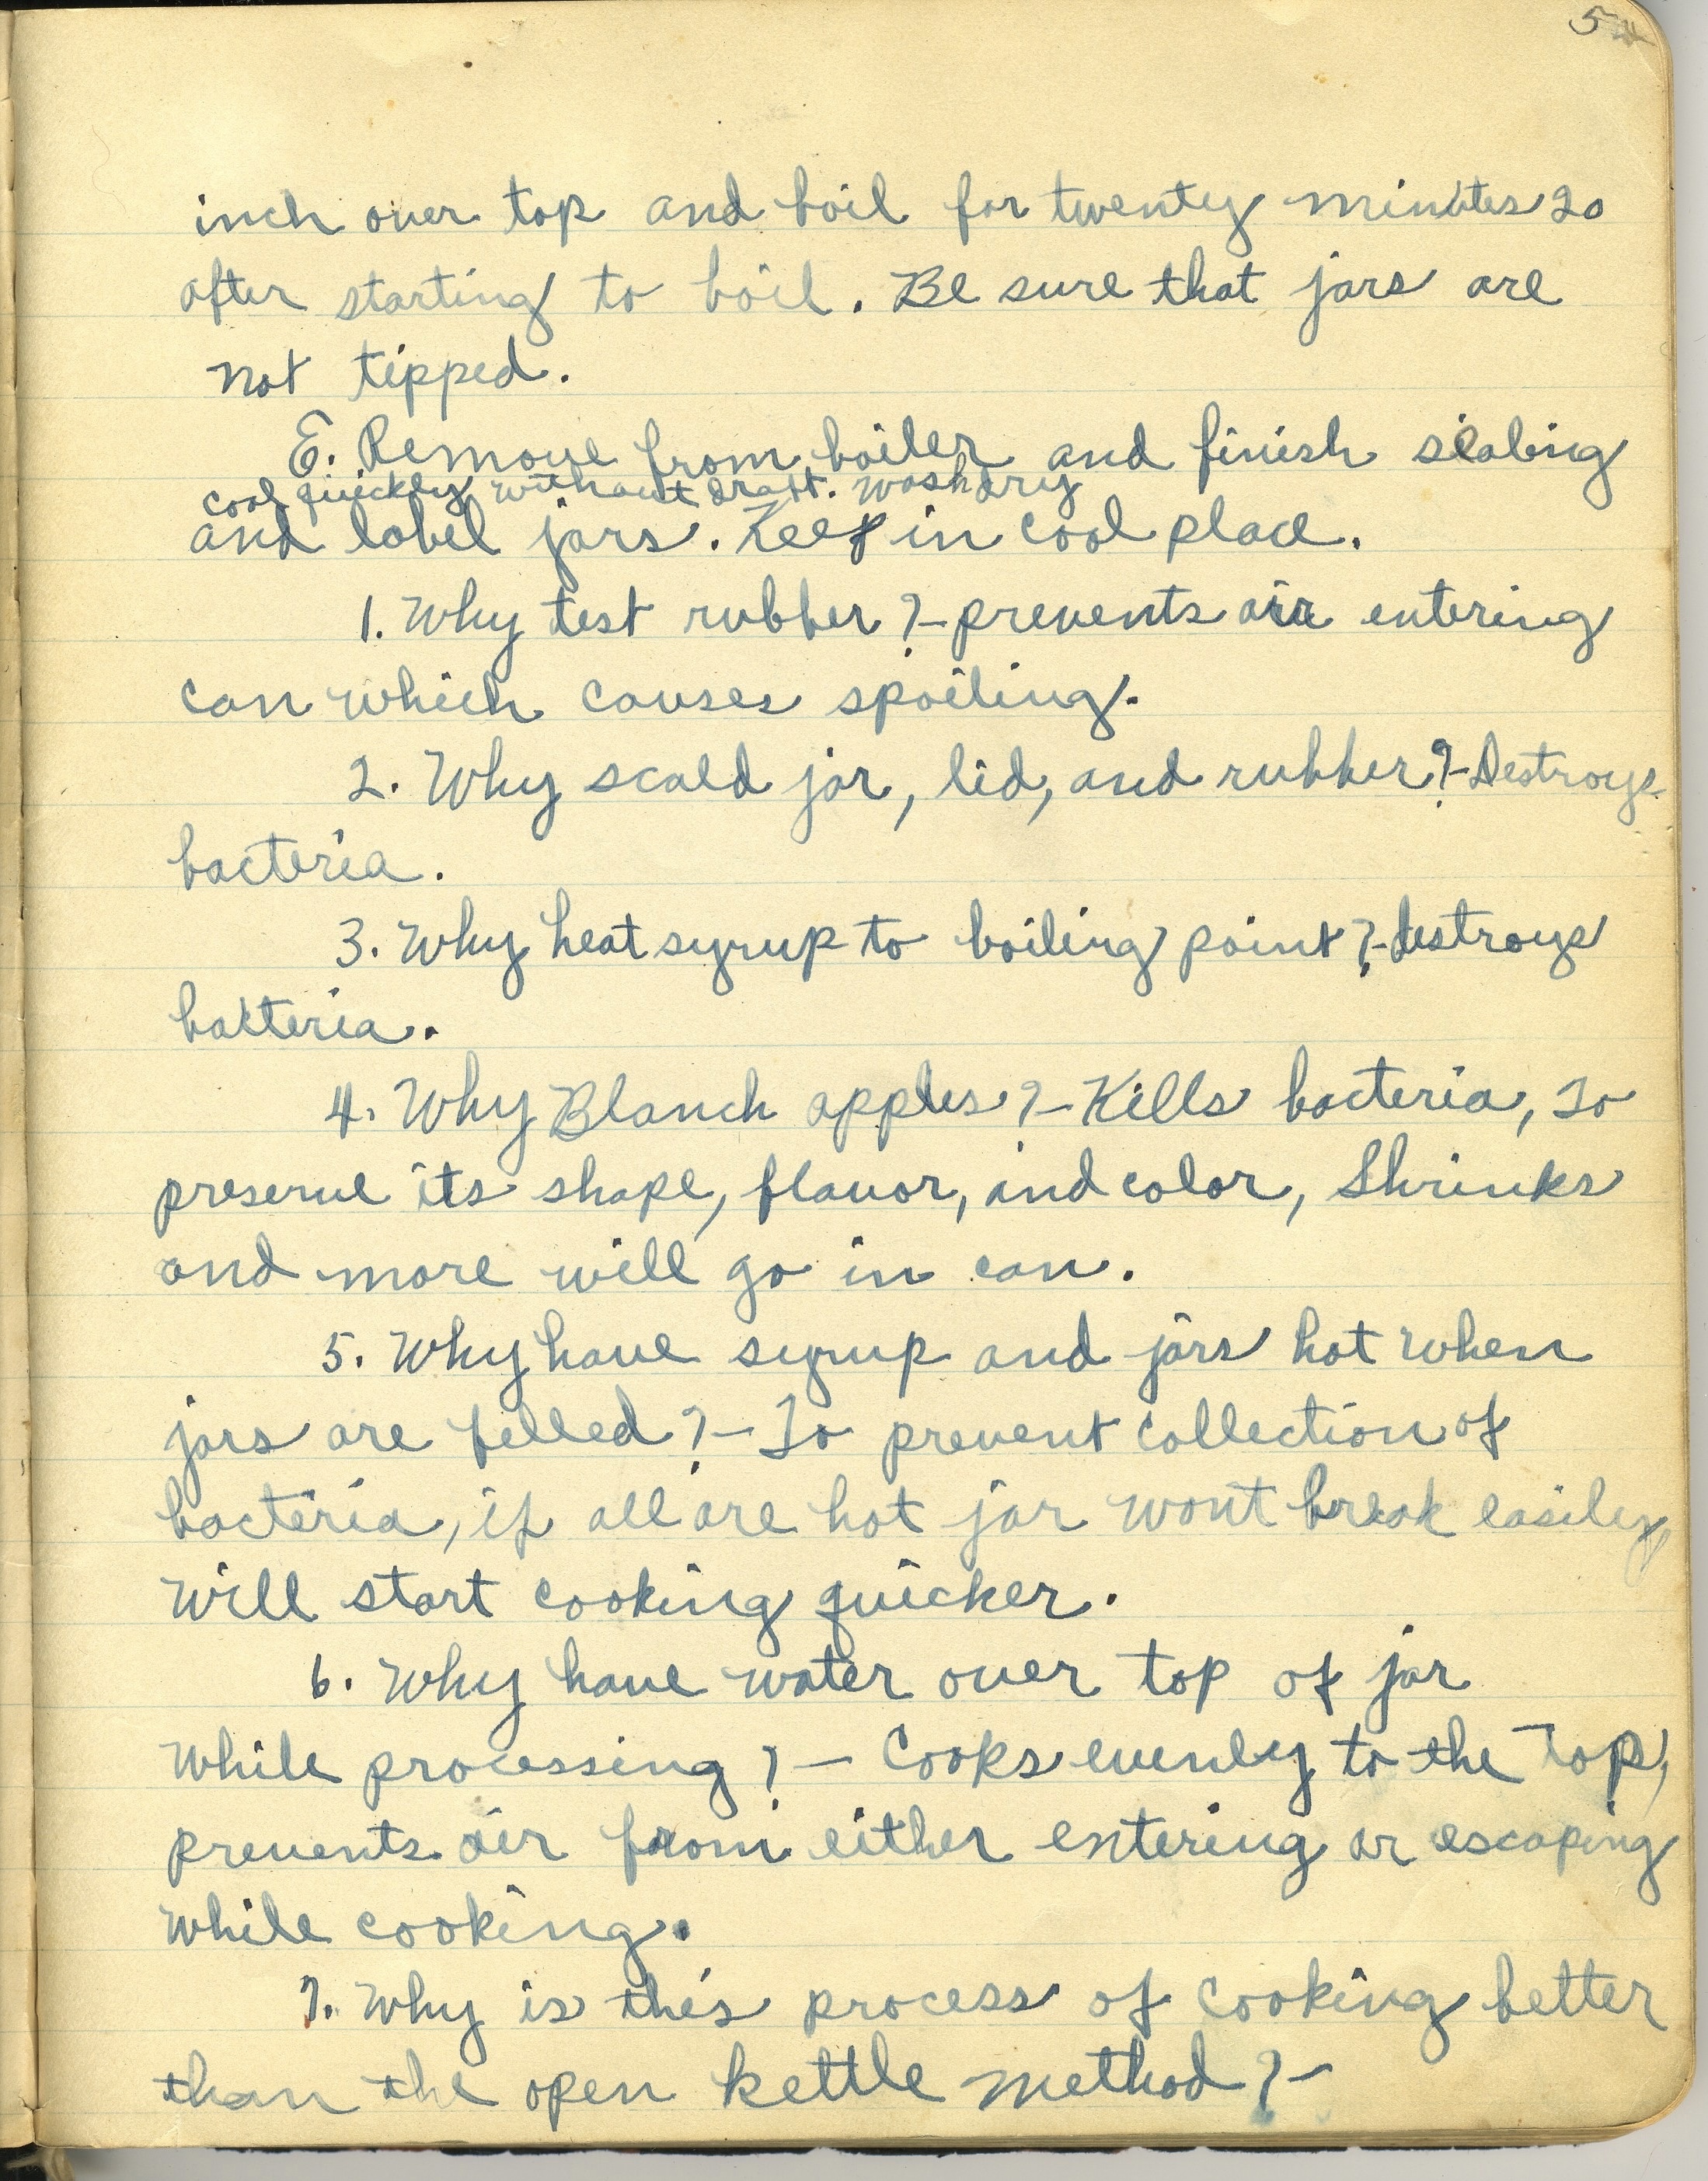 5
inch over top and boil for twenty minutes 20
after starting to boil. Be sure that jars are
not tipped.
E. Remove from boiler and finish sealing
cool quickly without draft. Wash dry
and label jars. Keep in cool place.
1. Why test rubber?- prevents air entering
can which causes spoiling.
2. Why scald jar, lid, and rubber?- Destroys
bacteria.
3. Why heat syrup to boiling point?- destroys
bacteria.
4. Why Blanch apples?- Kills bacteria, To
preserve its shape, flavor, and color, Shrinks
and more will go in can.
5. Why have syrup and jars hot when
jars are filled?- To prevent collection of
bacteria, if all are hot jar wont break easily,
Will start cooking quicker.
6. Why have water over top of jar
while processing?- Cooks evenly to the Top,
prevents air from either entering or escaping
while cooking.
7. Why is this process of cooking better
than the open kettle method?-